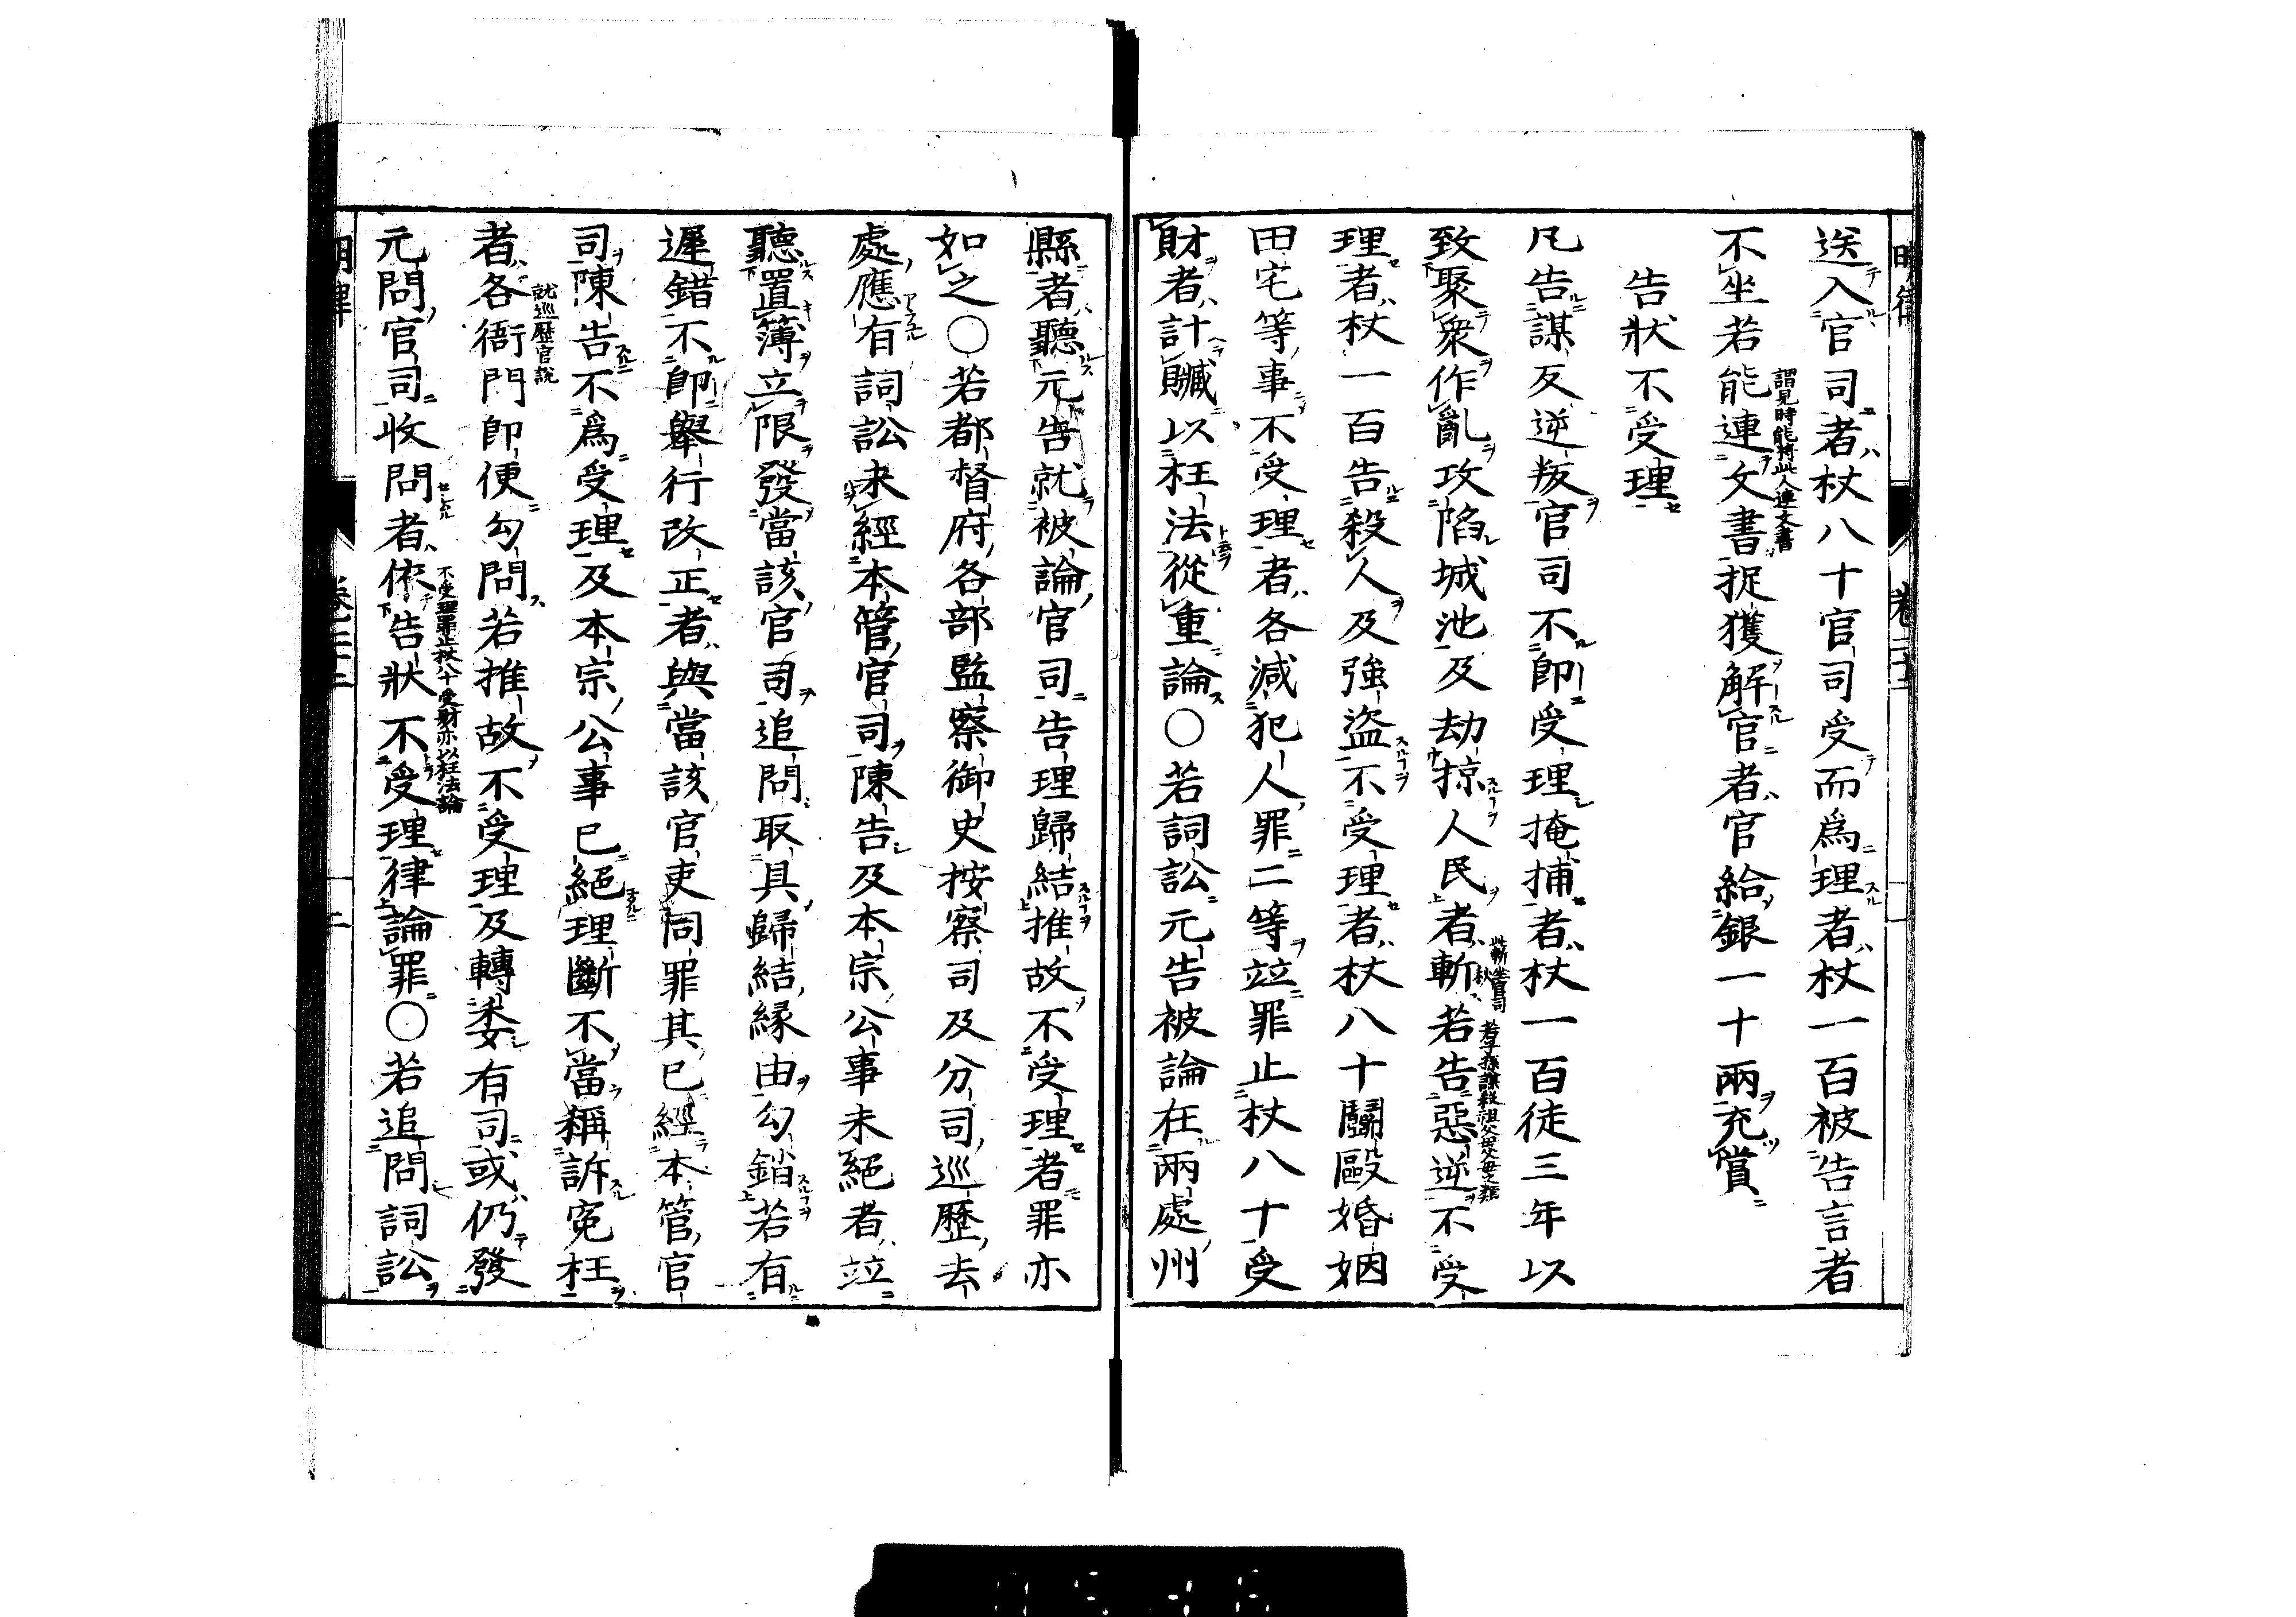 送入官司者杖八十官司受而爲理者杖一百被告言者
不坐若能連文書捉獲解官者官給銀一十兩充賞
謂見時能將此人連文書
告狀不受理
凡告謀反逆叛官司不即受理掩捕者杖一百徒三年以
致聚衆作亂攻陷城池及劫掠人民者斬若告惡逆不受
此斬坐官司
若子孫謀殺祖父母父母之類
理者杖一百告殺人及強盜不受理者杖八十鬭毆婚姻
田宅等事不受理者各減犯人罪二等竝罪止杖八十受
財者計贓以枉法從重論〇若詞訟元告被論在兩處州
縣者聽元告就被論官司告理歸結推故不受理者罪亦
如之〇若都督府各部監察御史按察司及分司巡歷去
處應有詞訟未經本管官司陳告及本宗公事未絕者竝
聽置簿立限發當該官司追問取具歸結緣由勾銷若有
遲錯不即舉行改正者與當該官吏同罪其已經本管官
司陳告不爲受理及本宗公事已絕理斷不當稱訴冤枉
者各衙門即便勾問若推故不受理及轉委有司或仍發
就巡歷官說
元問官司收問者依告狀不受理律論罪〇若追問詞訟
不受理罪止杖八十受財亦以枉法論